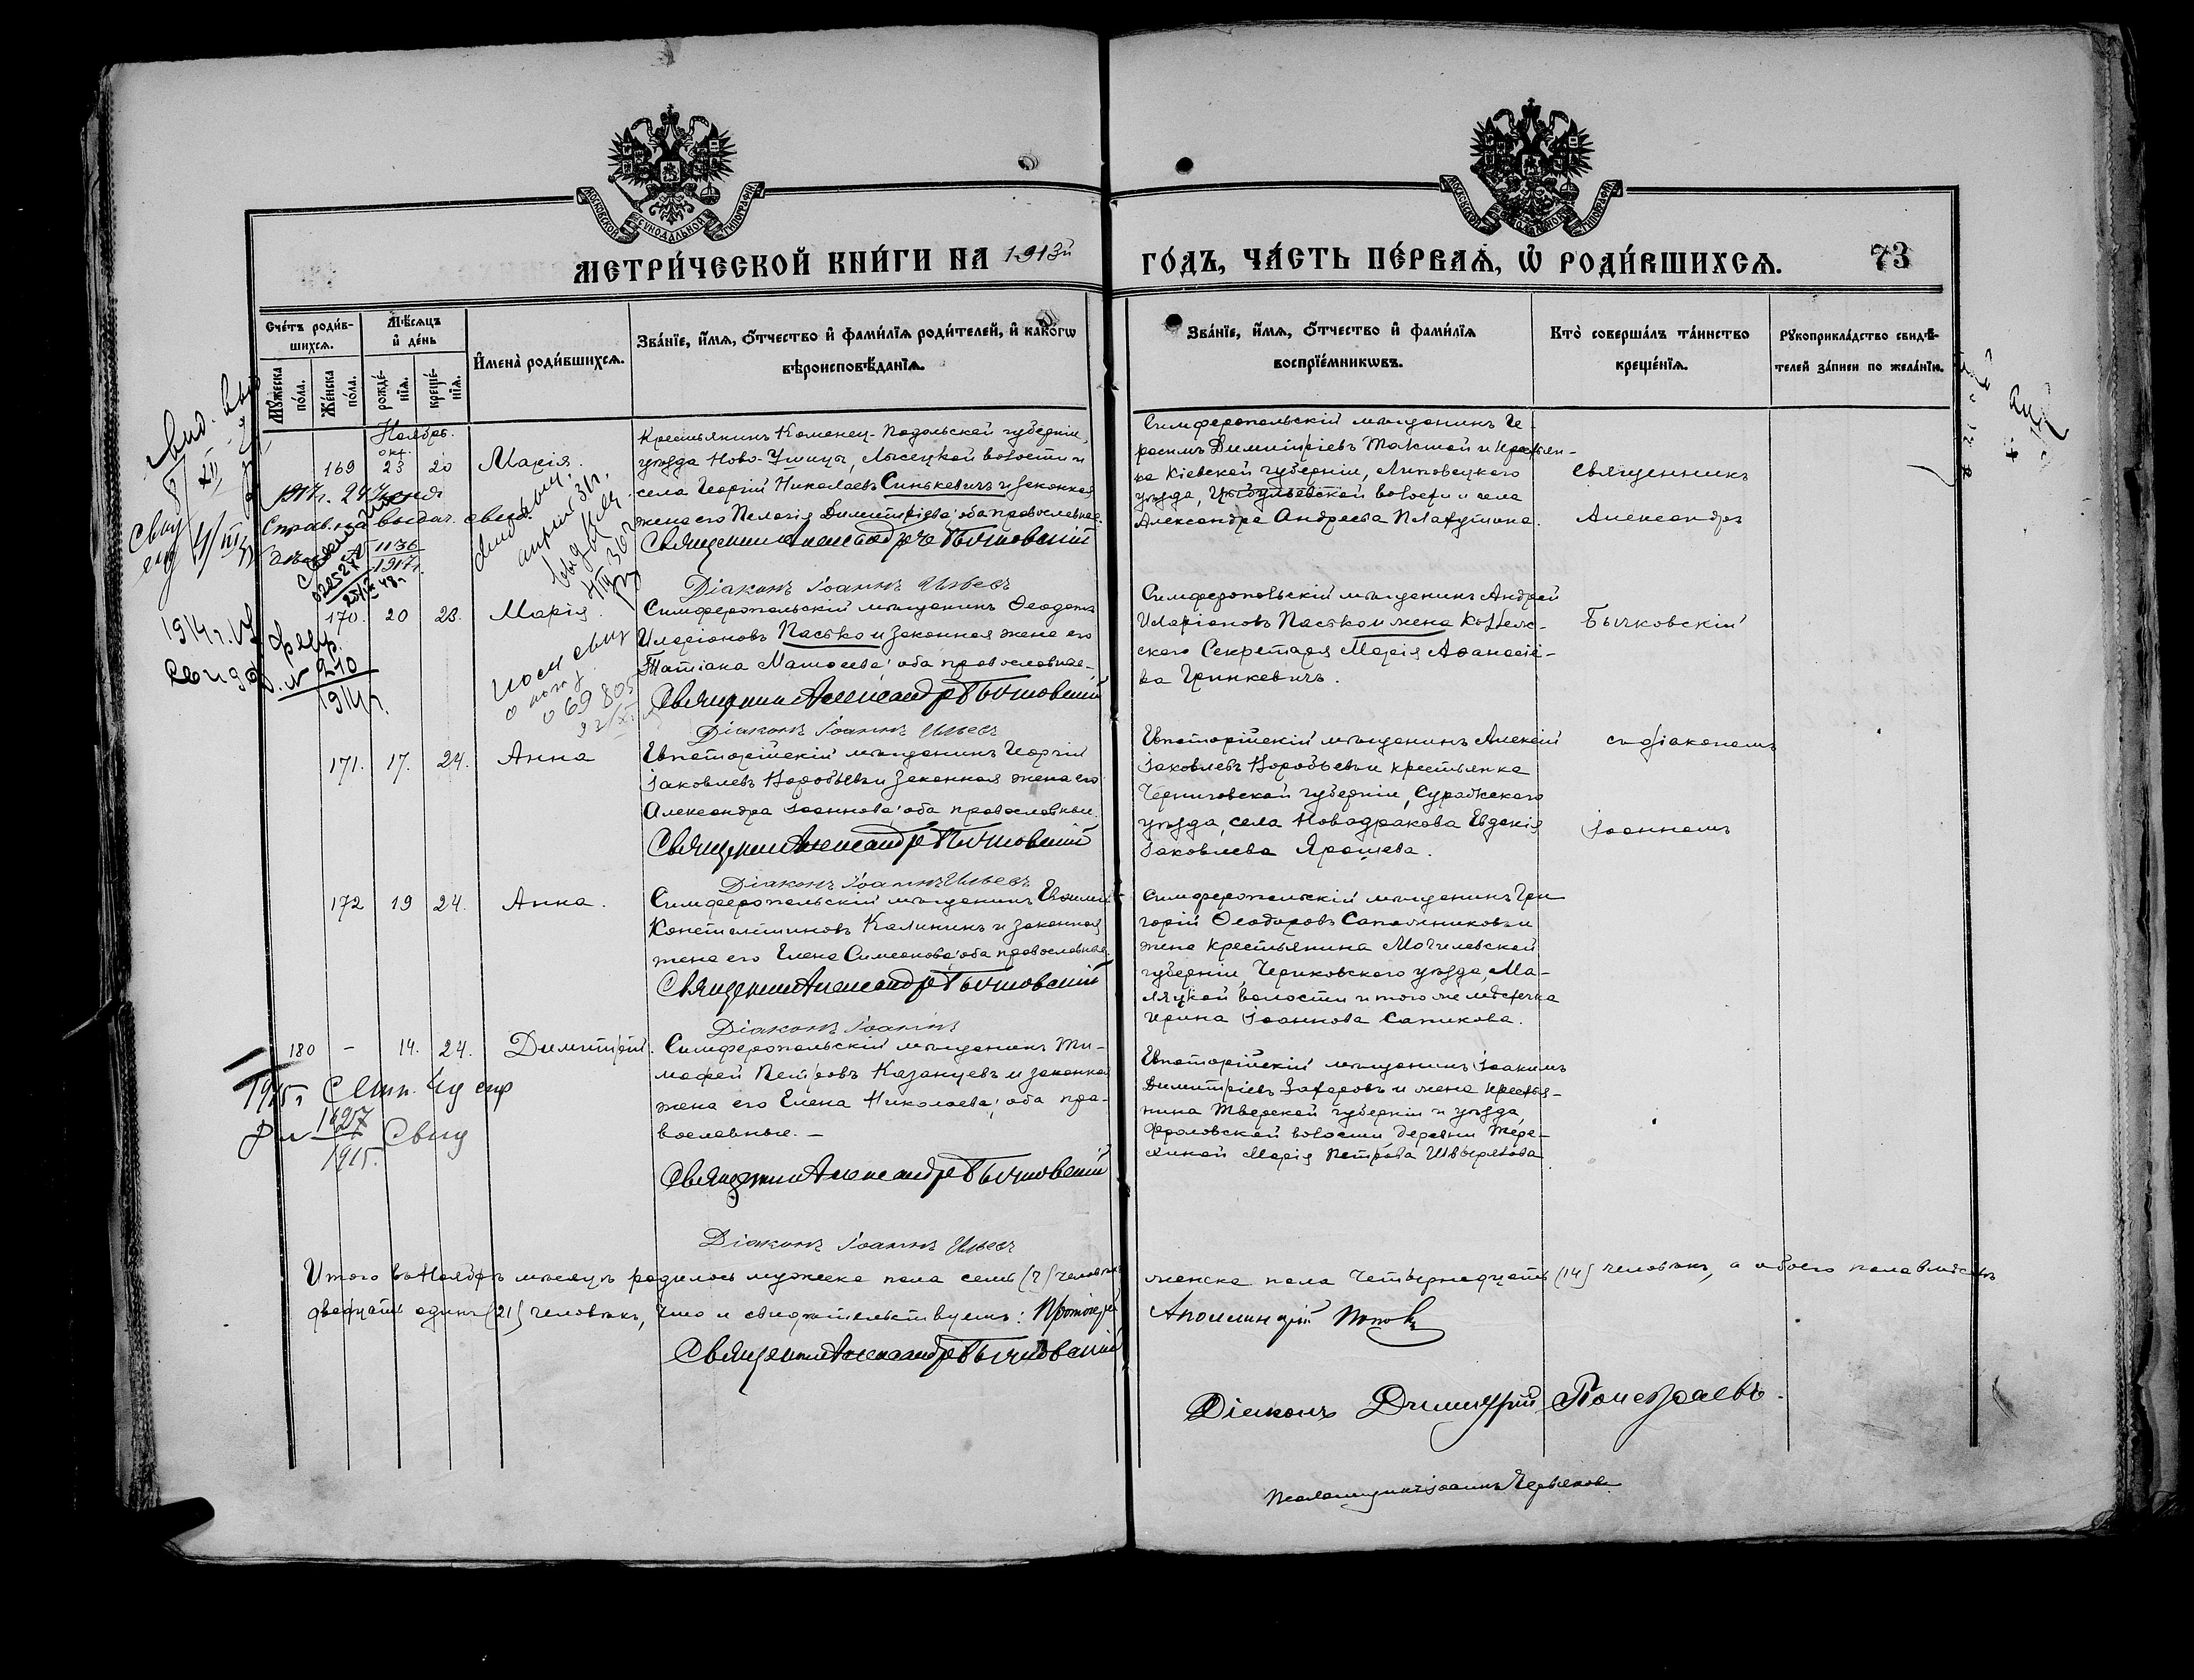 МОСКОВСКОЙ СѴНОДАЛЬНОЙ ТИПОГРАФІИ
МОСКОВСКОЙ СѴНОДАЛЬНОЙ ТИПОГРАФІИ
МЕТРИ́ЧЕСКОЙ КНИ́ГИ НА 1913й
ГО́ДЪ, ЧА́СТЬ ПЕ́РВАѦ, Ѡ҆ РОДИ́ВШИХСѦ.
73
Сче́тъ роди́в-
шихсѧ.
Мꙋ́жеска
по́ла.
Же́нска
по́ла.
Мѣ́сѧцъ
и҆ де́нь
рожде́-
нїѧ.
креще́-
нїѧ.
И҆мена̀ роди́вшихсѧ.
Зва́нїе, и҆́мѧ, ѻ҆́тчество и҆ фами́лїѧ роди́телей, и҆ како́гѡ
вѣроисповѣ́данїѧ.
Зва́нїе, и҆́мѧ, ѻ҆́тчество и҆ фами́лїѧ
воспрїе́мникѡвъ.
Кто̀ соверша́лъ та́инство
креще́нїѧ.
Рꙋкоприкла́дство свидѣ́-
телей за́писи по жела́нїю.
Ноябрь.
окт.
169 23 20 Марія.
Крестьянинъ Каменец-Подольской губерніи,
уѣзда Ново-Ушицы, Лысецкой волости и
села Георгій Николаевъ Синькевичъ и законная
жена его Пелагія Димитріева; оба православные.
Священникъ Александръ Бычковскій
Діаконъ Іоаннъ Ильевъ
Симферопольскій мѣщанинъ Ге-
расимъ Димитріевъ Токмой и крестьян-
ка Кіевской губерніи, Липовецкаго
уѣзда, Цыбулевской волости и села
Александра Андреева Платушина.
Священникъ
Александръ
Бычковскій
съ діакономъ
Іоанномъ
1917г. 24
Справ. на выдач. свид.
1136
1917г.
170. 20 23. Марія.
Симферопольскій мѣщанинъ Ѳеодотъ
Иларіоновъ Пастко и законная жена его
Татіана Матѳеева; оба православные.
Священникъ Александръ Бычковскій
Діаконъ Іоаннъ Ильевъ
Симферопольскій мѣщанинъ Андрей
Иларіоновъ Пастко и жена Коллеж-
скаго Секретаря Марія Аѳанасіе-
ва Гринкевичъ.
1914г. 17 февр.
Свид. № 210
1914г.
069805
171. 17. 24. Анна
Евпаторійскій мѣщанинъ Георгій
Іаковлевъ Воробьевъ и законная жена его
Александра Іоаннова; оба православные.
Священникъ Александръ Бычковскій
Діаконъ Іоаннъ Ильевъ
Евпаторійскій мѣщанинъ Алексій
Іаковлевъ Воробьевъ и крестьянка
Черниговской губерніи, Суражскаго
уѣзда, села Новодрокова Евдокія
Іаковлева Ярошева.
172 19 24. Анна.
Симферопольскій мѣщанинъ Евѳимій
Константиновъ Калинин и законная
жена его Елена Симеонова; оба православные.
Священникъ Александръ Бычковскій
Діаконъ Іоаннъ
Симферопольскій мѣщанинъ Гри-
горій Ѳеодоровъ Сапожниковъ и
жена крестьянина Могилевской
губерніи, Чериковскаго уѣзда, Ма-
ляцкой волости и того же мѣстечка
Ирина Іоаннова Сапикова.
180 - 14. 24. Димитрій.
Симферопольскій мѣщанинъ Ти-
мофей Петровъ Казанцевъ и законная
жена его Елена Николаева; оба пра-
вославные. —
Священникъ Александръ Бычковскій
Діаконъ Іоаннъ Ильевъ
Евпаторійскій мѣщанинъ Іоакимъ
Димитріевъ Захаровъ и жена крестья-
нина Тверской губерніи и уѣзда,
Фроловской волости деревни Тере-
Марія Петрова
1915г.
1627
1915.
Итого въ Ноябрѣ мѣсяцѣ родилось мужеска пола семь (7) человѣкъ,
женска пола четырнадцать (14) человѣкъ, а обоего пола вмѣстѣ
двадцать одинъ (21) человѣкъ, что и свидѣтельствуемъ: Протоіерей
Аполлинарій Поповъ
Священникъ Александръ Бычковскій
Діаконъ Димитрій
Псаломщикъ Іоаннъ Червяковъ.